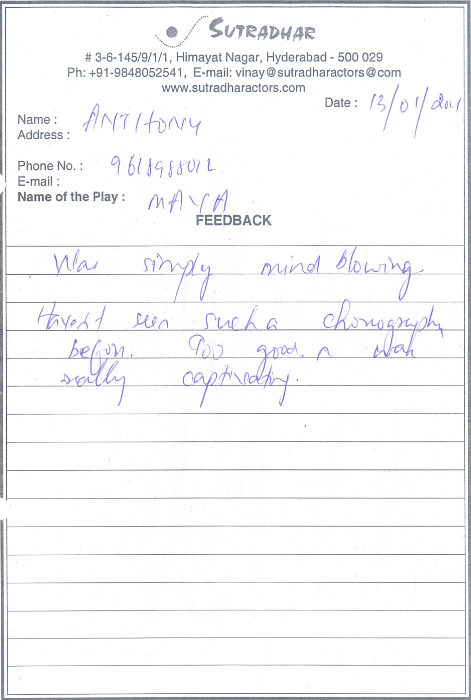 SUTRADHAR
# 3-6-145/9/1/1, Himayat Nagar, Hyderabad - 500 029
Ph: +91-9848052541, E-mail: vinay@sutradharactors@com
www.sutradharactors.com
Date : 13/01/201
Name : ANTHONY
Address :
Phone No. : 9618988012
E-mail :
Name of the Play : MAYA
FEEDBACK
Was simply mind blowing.
Haven't seen such a
before. Too good. n was
really captivating.